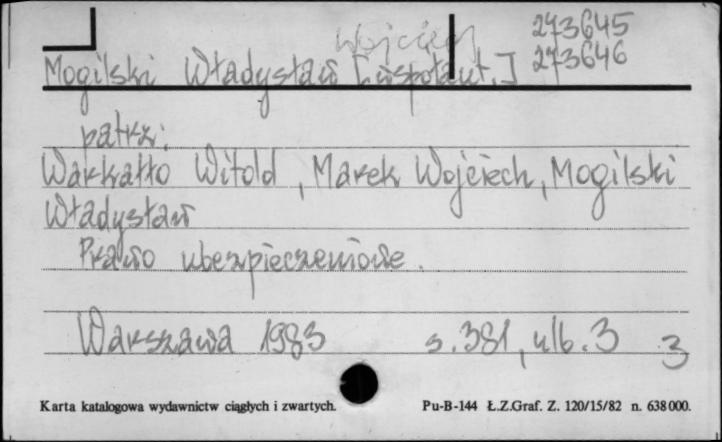 Wojciech 273645
Mogilski Władysław [współaut.] 273646
patrz:
Warkałło Witold, Marek Wojciech, Mogilski
Władysław
Prawo ubezpieczeniowe.
Warszawa 1983 s. 381, nlb. 3
3
Karta katalogowa wydawnictw ciągłych i zwartych. Pu-B-144 Ł.Z.Graf. Z. 120/15/82 n. 638000.